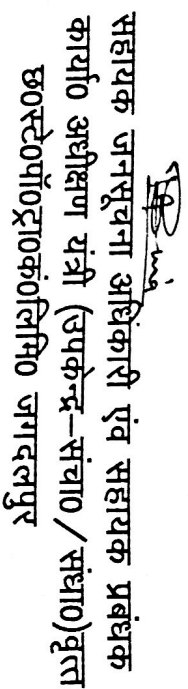 सहायक जनसूचना अधिकारी एंव सहायक प्रबंधक
कार्या0 अधीक्षण यंत्री (उपकेन्द्र–संचा0 / संधा0)वृत्त
छ0स्टे0पॉ0ट्रां0कं0लिमि0 जगदलपुर